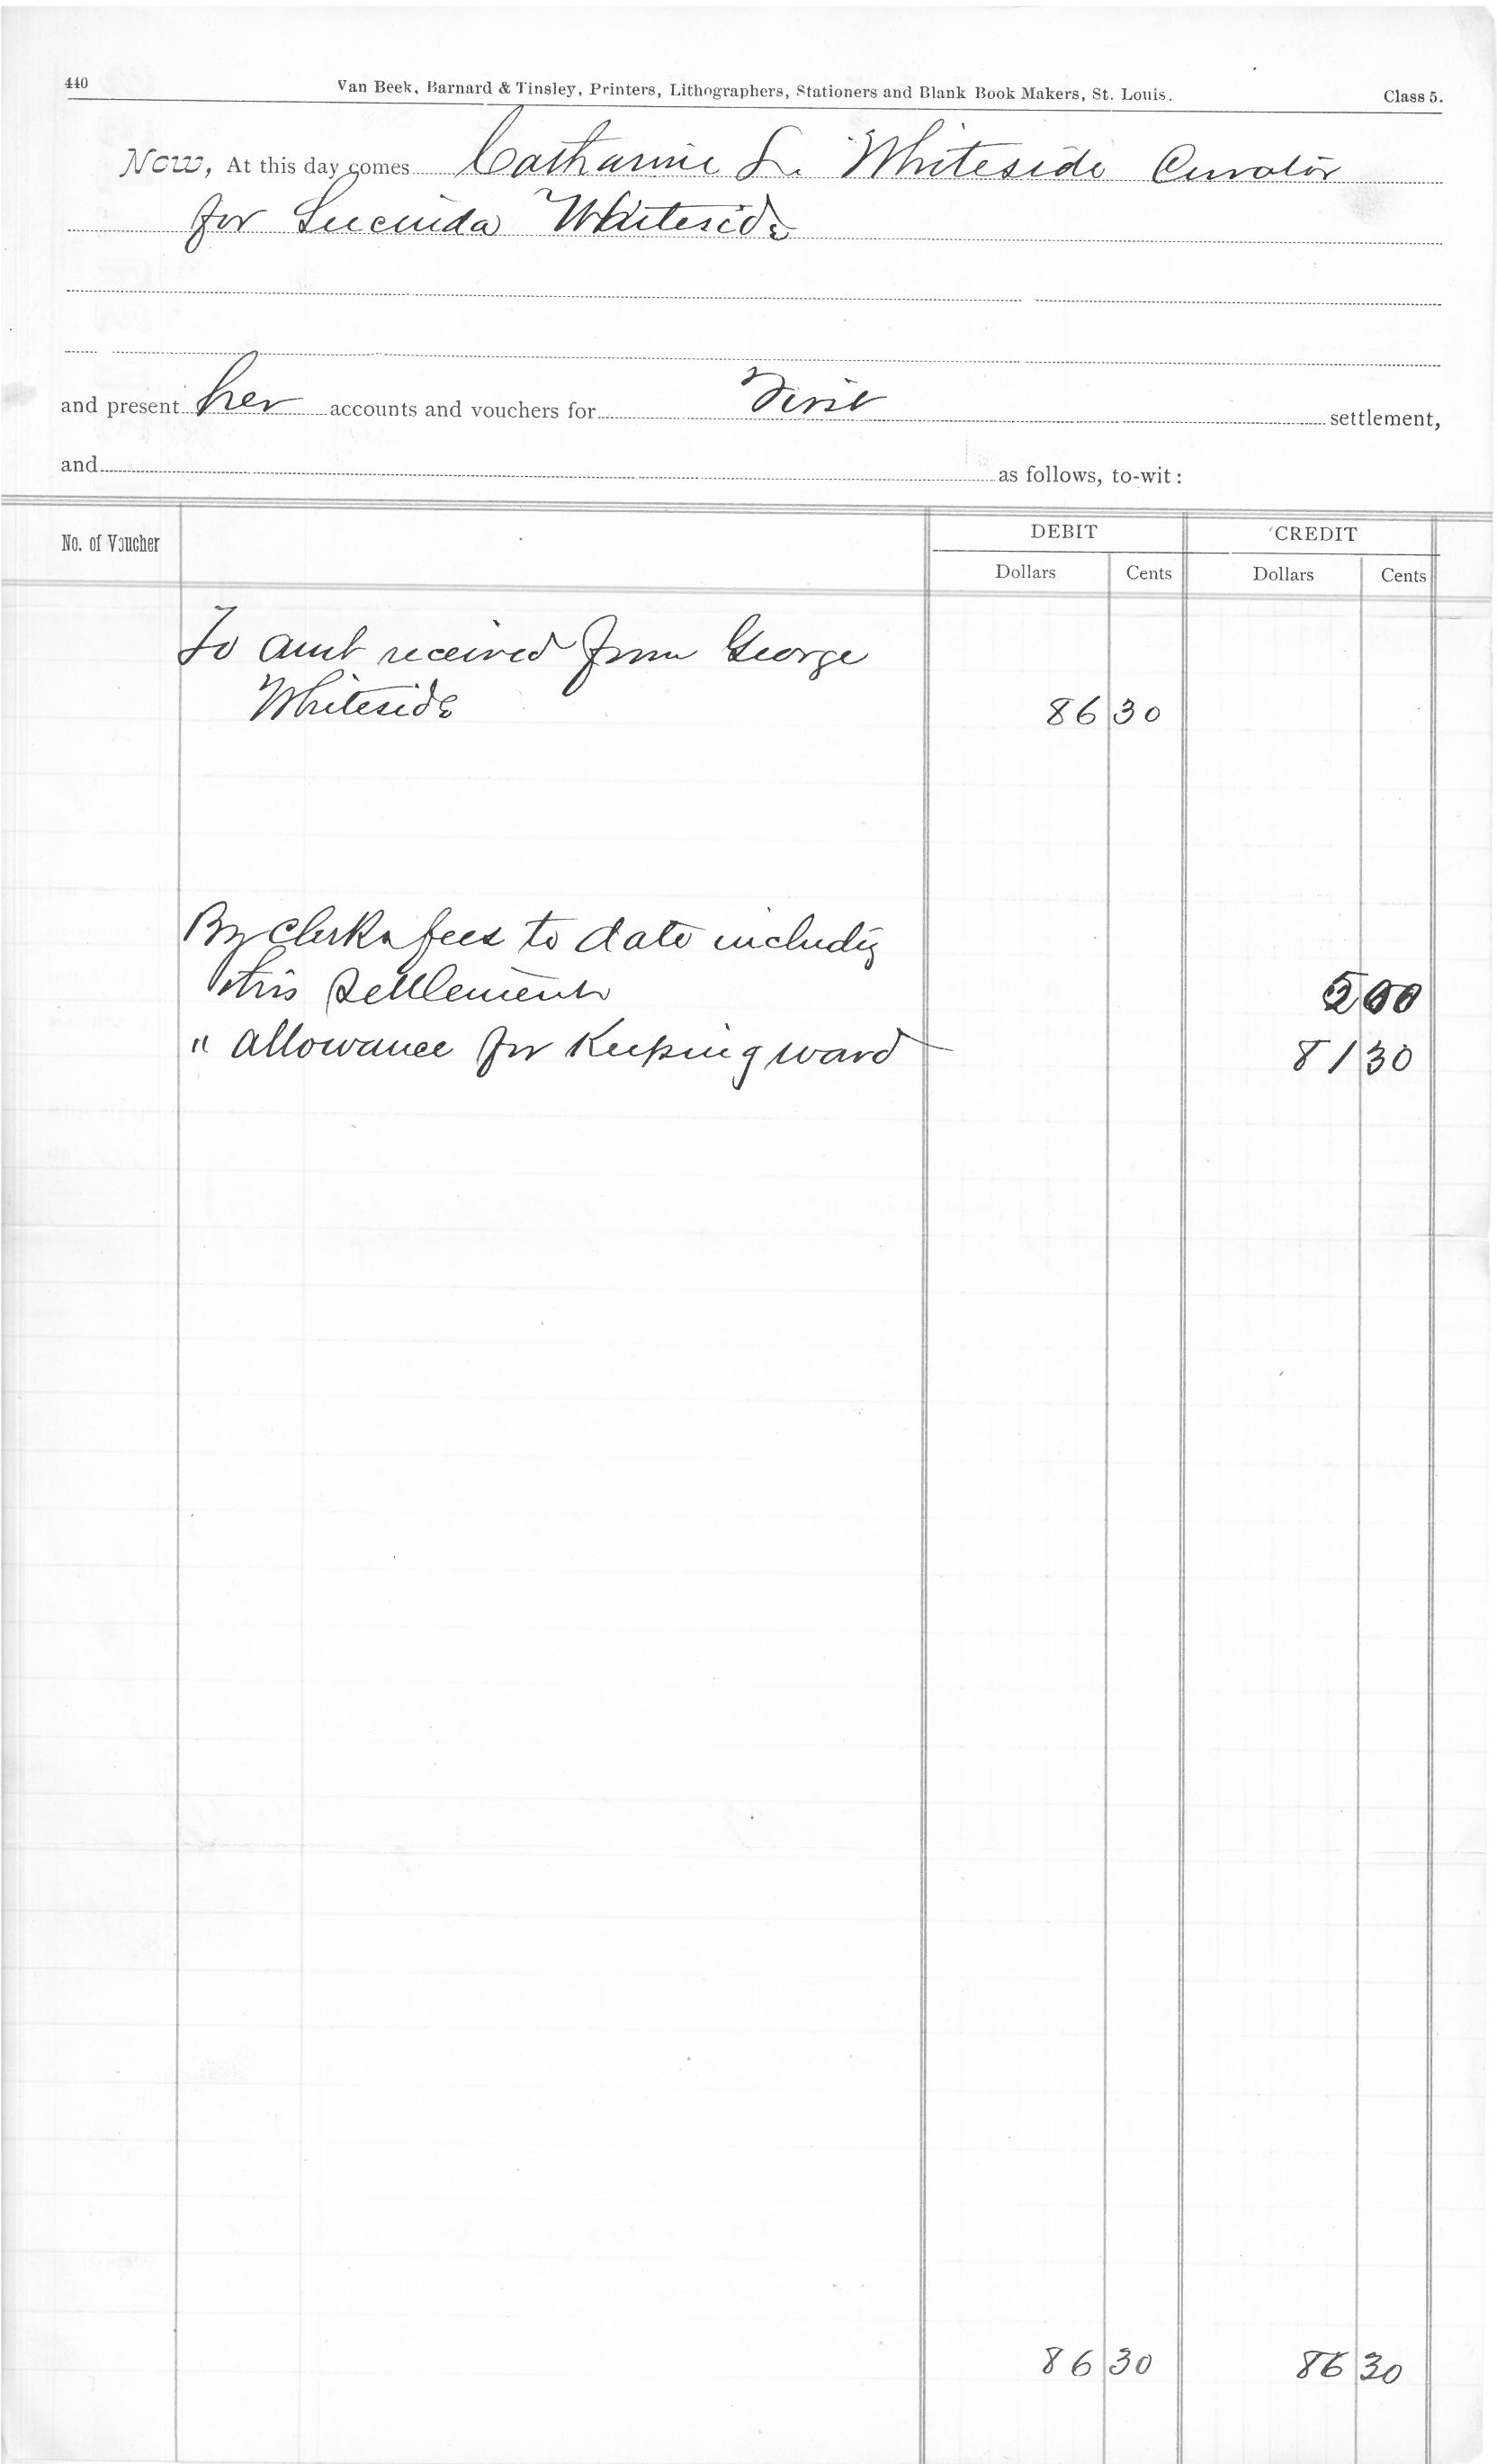 440 Van Beek, Barnard & Tinsley, Printers, Lithographers, Stationers and Blank Book Makers, St. Louis. Class 5.
Now, At this day comes Catharine L. Whiteside Curator
for Lucinda Whiteside
and present her accounts and vouchers for First settlement,
and as follows, to-wit:
DEBIT CREDIT
No. of Voucher
Dollars Cents Dollars Cents
To amt received from George
Whiteside 86 30
By clerks fees to date includig
this settlement 5 00
" allowance for keeping ward 81 30
86 30 86 30